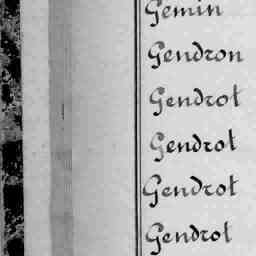 Gemin
Gendron
Gendrot
Gendrot
Gendrot
Gendrot